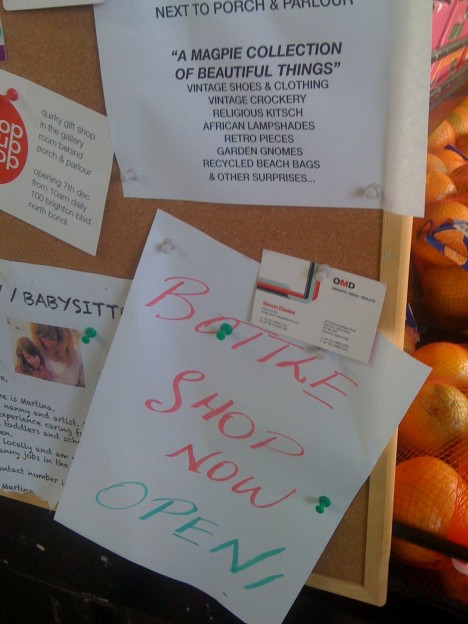 NEXT TO PORCH & PARLOUR
“A MAGPIE COLLECTION
OF BEAUTIFUL THINGS”
VINTAGE SHOES & CLOTHING
VINTAGE CROCKERY
RELIGIOUS KITSCH
AFRICAN LAMPSHADES
RETRO PIECES
GARDEN GNOMES
RECYCLED BEACH BAGS
& OTHER SURPRISES...
quirky gift shop
in the gallery
room behind
porch & parlour
opening 7th dec
from 10am daily
100 brighton blvd
north bondi
OMD
Simon Davies
BOTTRE
SHOP
NOW
OPEN!
/ BABYSITT
is Martina.
nanny and artist,
experience caring
toddlers and
locally and am
nanny jobs in the
contact number
Martina